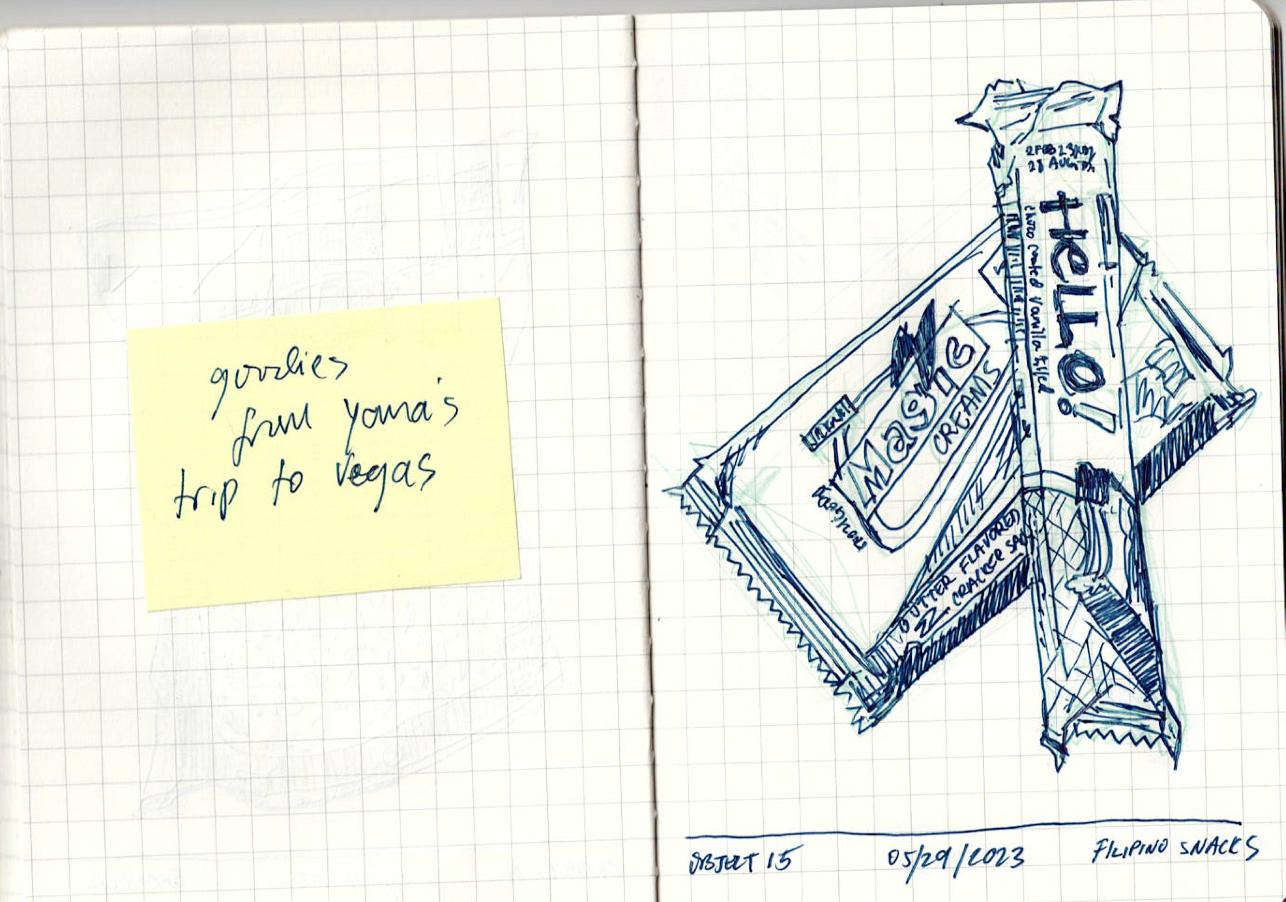 goodies
from yoma's
trip to vegas
HELLO!
choco coated vanilla filled
Magic
CREAMS
BUTTER FLAVORED
CRACKER SA
OBJECT 15 05/29/2023 FILIPINO SNACKS